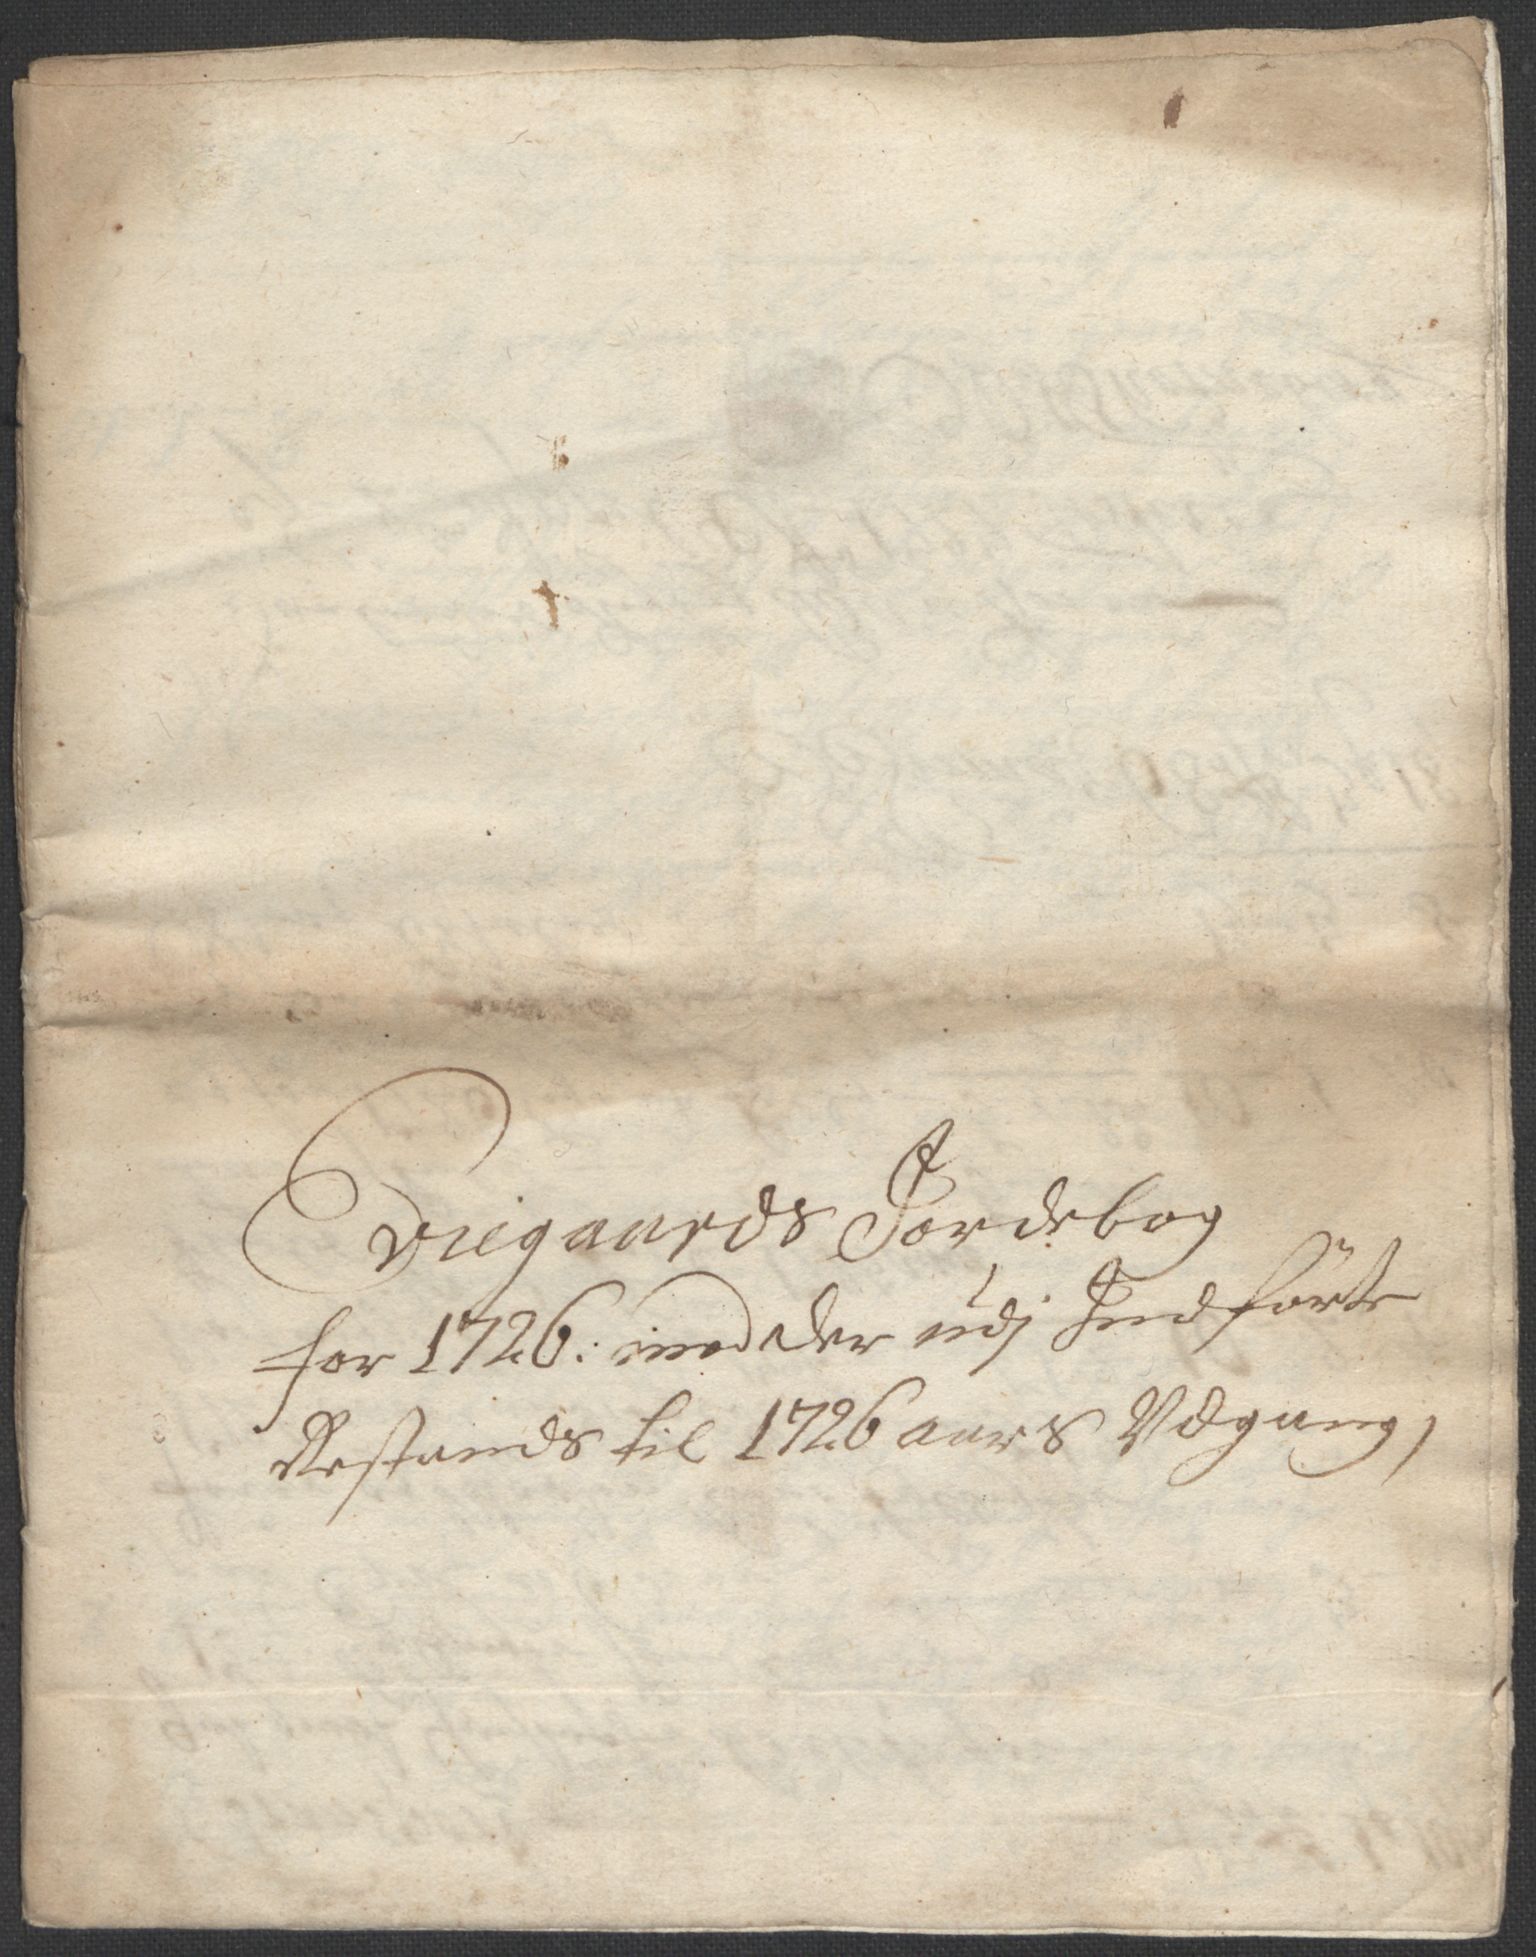 Evigaards Jordebog
for 1726: med der udj Indförte
Restands til 1726 aars Udgang,